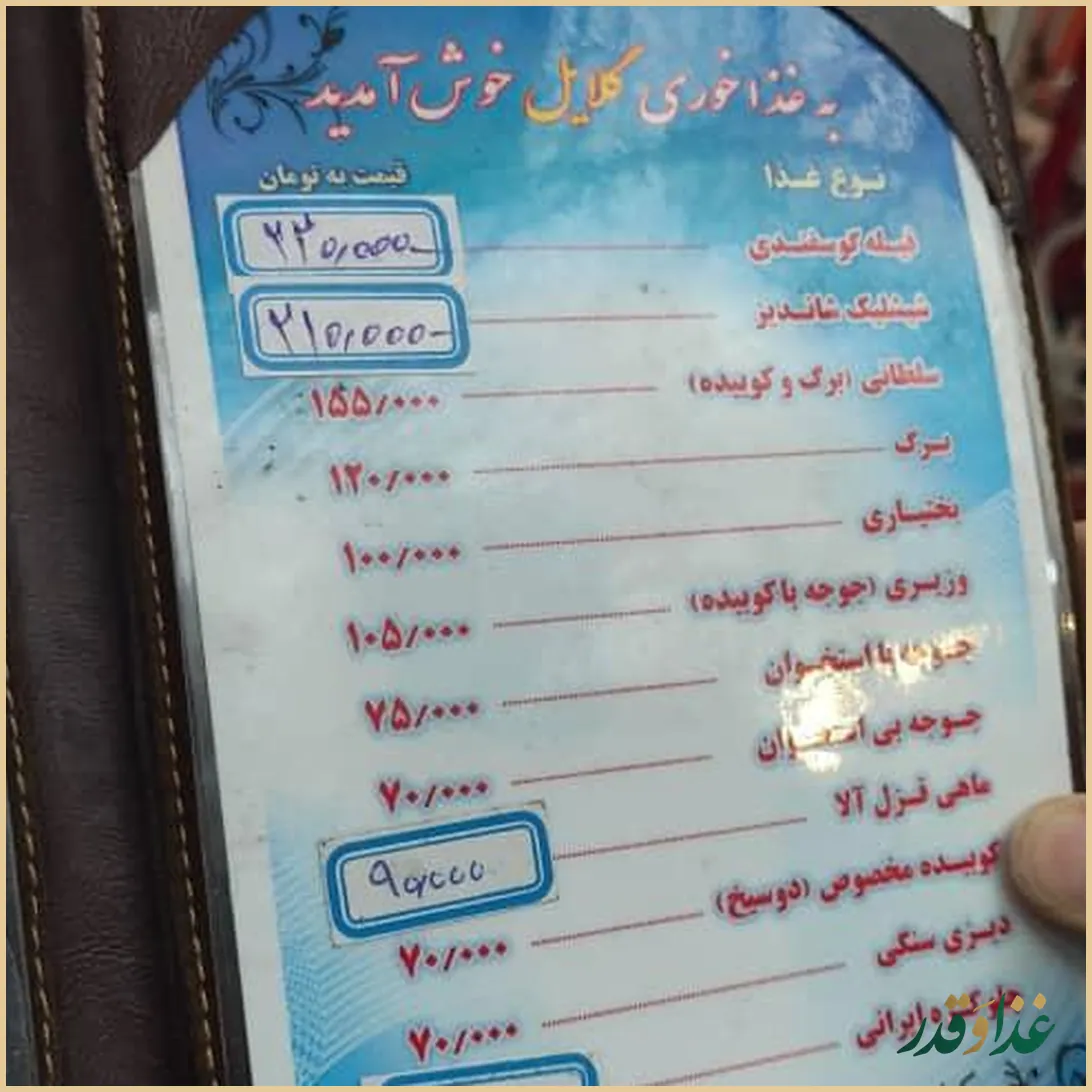 به غذاخوری گلایل خوش آمدید
نوع غذا قیمت به تومان
فیله گوسفندی ۲۳۰,۰۰۰-
شیشلیک شاندیز ۲۱۰,۰۰۰-
سلطانی (برگ و کوبیده) ۱۵۵/۰۰۰
برگ ۱۲۰/۰۰۰
بختیاری ۱۰۰/۰۰۰
وزیری (جوجه با کوبیده) ۱۰۵/۰۰۰
جوجه با استخوان ۷۵/۰۰۰
جوجه بی استخوان ۷۰/۰۰۰
ماهی قزل آلا ۹۰,۰۰۰
کوبیده مخصوص (دوسیخ) ۷۰/۰۰۰
دیزی سنگی ۷۰/۰۰۰
ایرانی
غذا و قدر